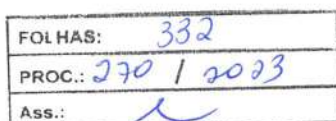 FOLHAS: 332
PROC.: 270 / 2023
Ass.: